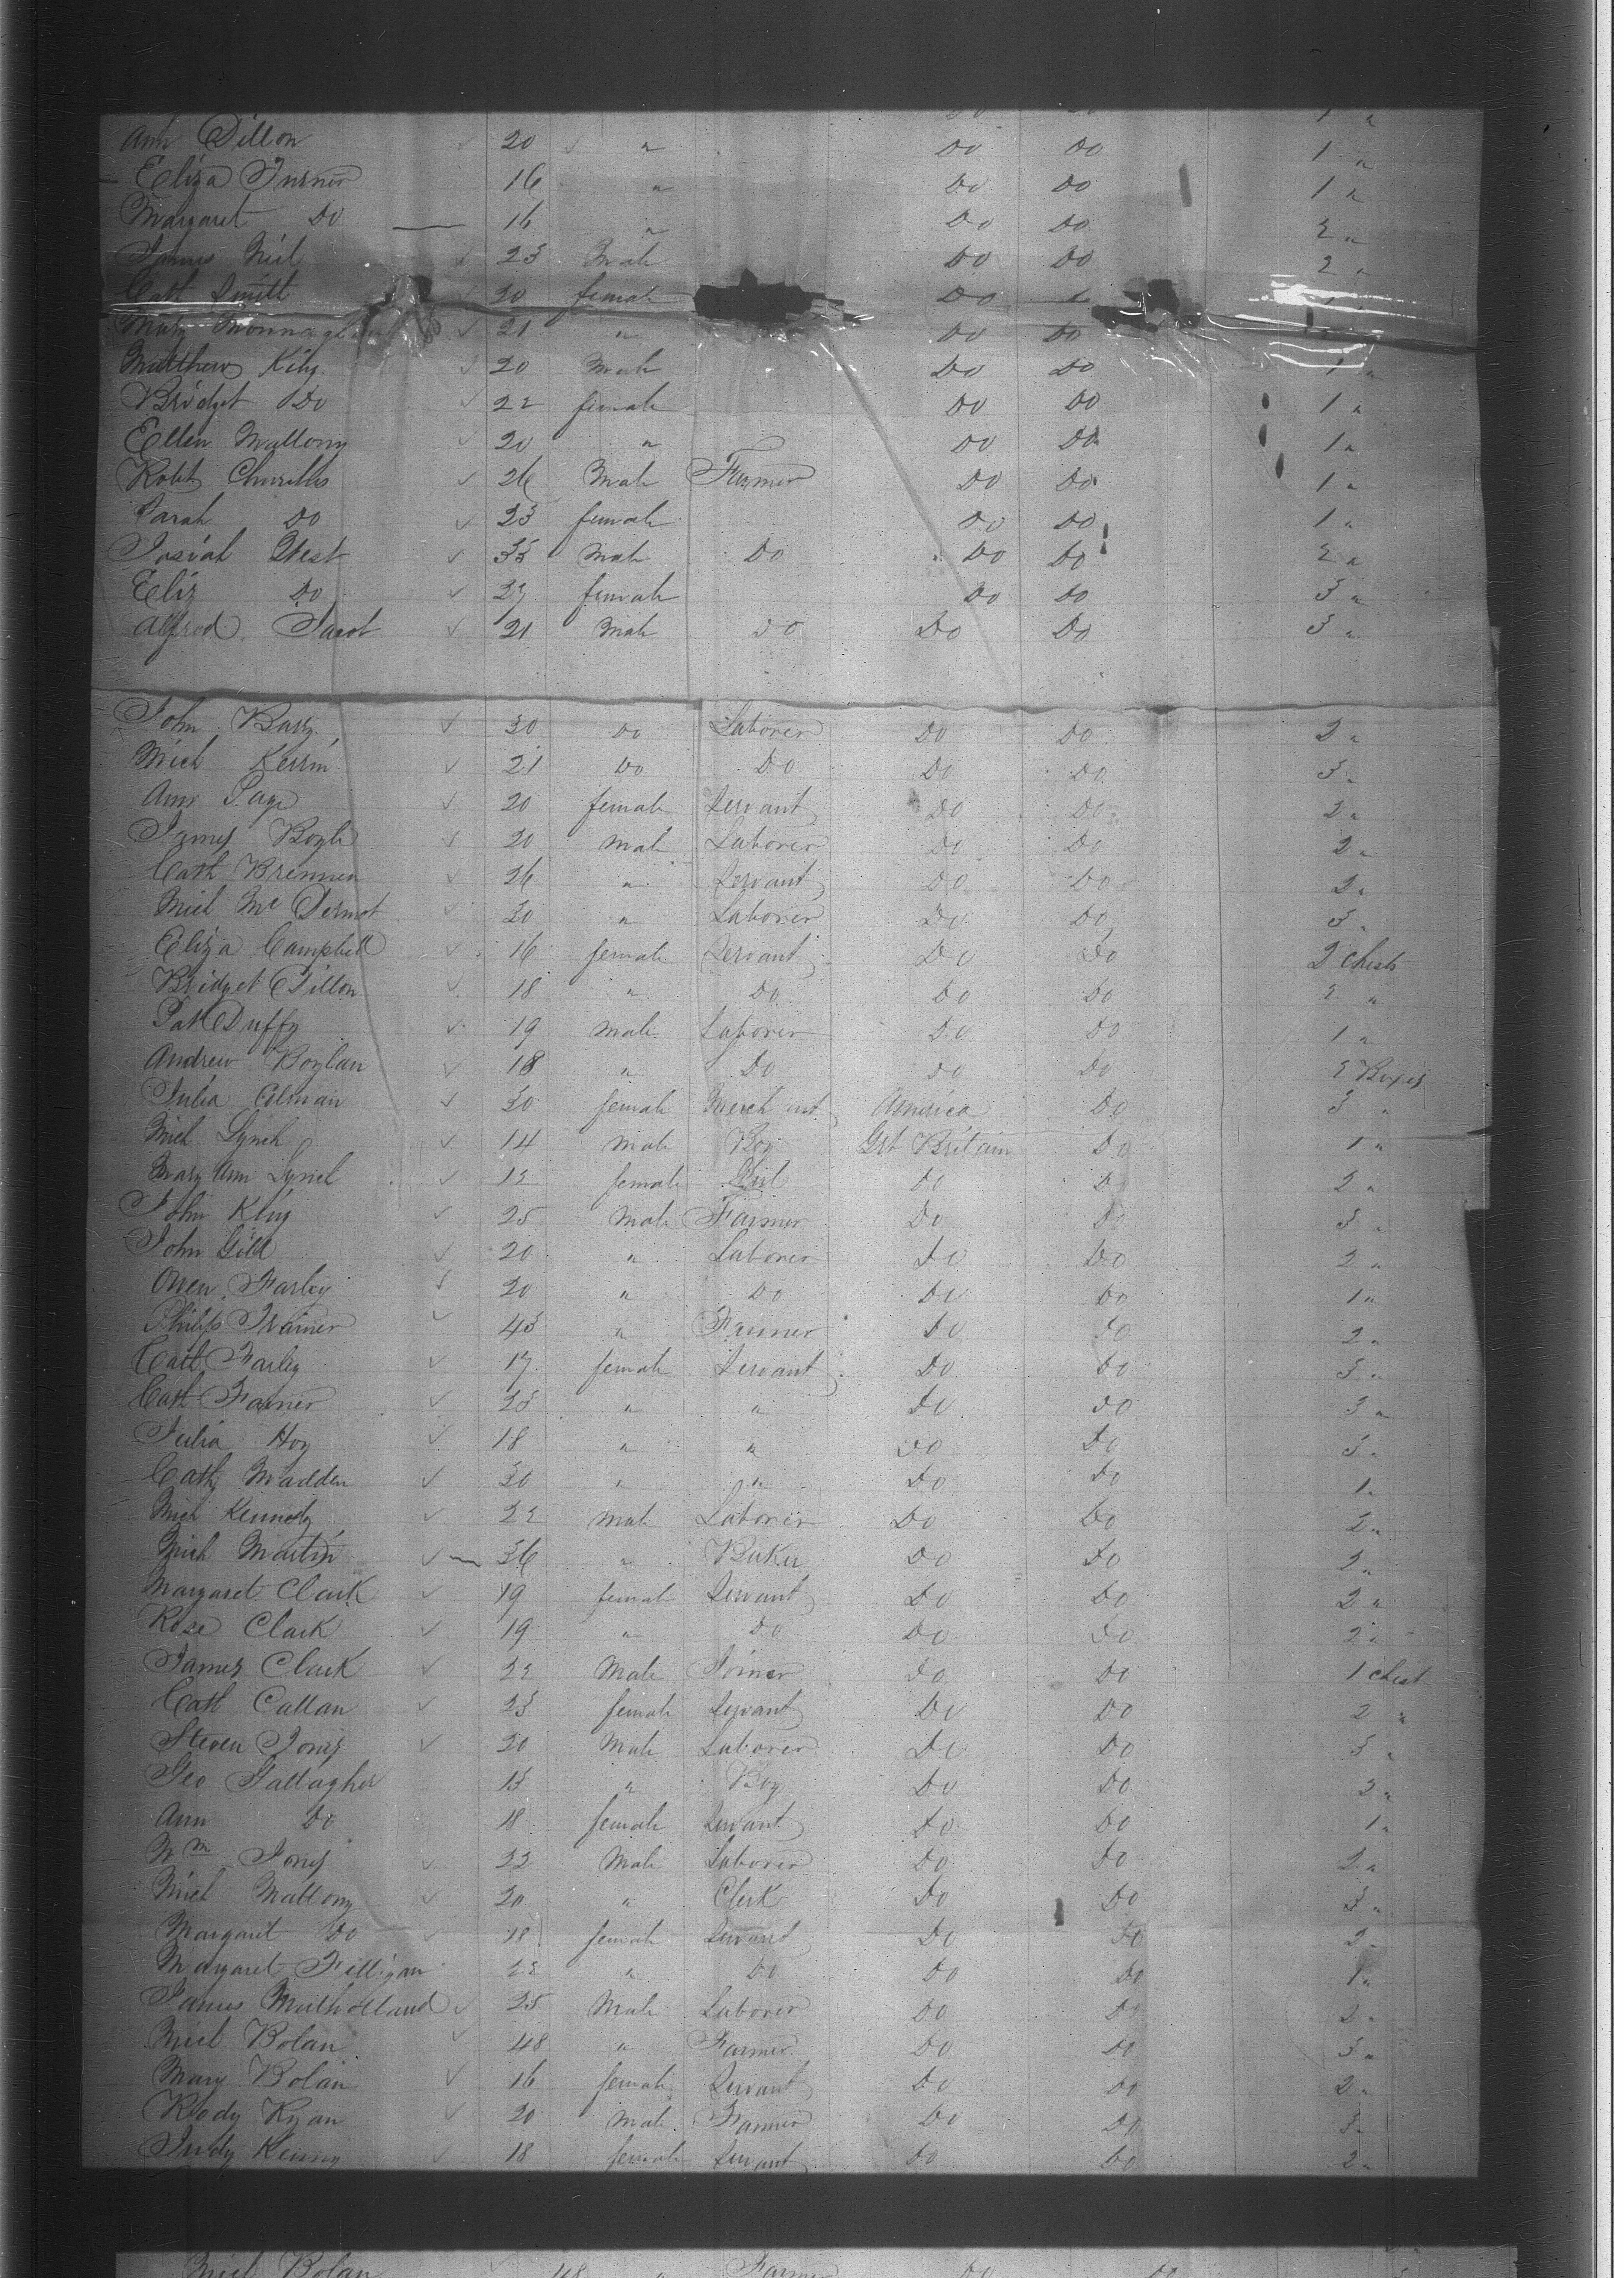 Ann Dillon 20 " Do Do 1 "
Eliza Turner 16 " Do Do 1 "
Margaret Do 16 " Do Do 2 "
James Neil 23 Male Do Do 2 "
Cath Smith 20 female Do
Mary 21 " Do Do
Matthew King 20 Male Do Do 1 "
Bridget Do 22 female Do Do 1 "
Ellen Mallony 20 " Do Do 1 "
Robt 26 Male Farmer Do Do 1 "
Sarah Do 23 female Do Do 1 "
Josiah West Male Do Do Do 2 "
Eliz Do 27 female Do Do 3 "
Alfred 21 Male Do Do Do 3 "
John Barry 30 Do Laborer Do Do 2 "
Mich Kerrin 21 Do Do Do Do 3 "
Ann Page 20 female Servant Do Do 2 "
James Boyle 20 Male Laborer Do Do 2 "
Cath Brennen 26 " Servant Do Do 2 "
Micl Mc Dermot 30 " Laborer Do Do 3 "
Eliza Campbell 16 female Servant Do Do 2 Chests
Bridget Dillon 18 " Do Do Do 2 "
Pat Duffy 19 Male Laborer Do Do 1 "
Andrew Boylan 18 " Do Do Do 2 Boxes
Julia Colman 30 female America Do 3 "
Mich Lynch 14 Male Boy Grt Britain Do 1 "
Mary Ann Lynch 12 female Girl Do Do 2 "
John King 25 Male Farmer Do Do 3 "
John Gill 20 " Laborer Do Do 2 "
Owen Farley 20 " Do Do Do 1 "
Philip Trainer 43 " Farmer Do Do 2 "
Cath Farley 17 female Servant Do Do 3 "
Cath Farmer 23 " " Do Do 3 "
Julia Hoy 18 " " Do Do 3 "
Cath Madden 30 " " Do Do 1 "
Mich Kennedy 22 Male Laborer Do Do 2 "
Mich Martin 36 " Baker Do Do 2 "
Margaret Clark 19 female Servant Do Do 2 "
Rose Clark 19 " Do Do Do 2 "
James Clark 22 Male Joiner Do Do 1 Chest
Cath Callan 23 female Servant Do Do 2 "
Steven Jones 20 Male Laborer Do Do 3 "
Geo Gallagher 13 " Boy Do Do 2 "
Ann Do 18 female Servant Do Do 1 "
Wm Jones 22 Male Laborer Do Do 2 "
Micl Mallony 20 " Clerk Do Do 3 "
Margaret Do 18 female Servant Do Do 2 "
Margaret Filligan 22 " Do Do Do 1 "
James Mulholland 25 Male Laborer Do Do 2 "
Micl Bolan 48 " Farmer Do Do 3 "
Mary Bolan 16 female Servant Do Do 2 "
Rody Ryan 20 Male Farmer Do Do 3 "
Judy Kenny 18 female Servant Do Do 2 "
Micl Bolan 48 " Farmer Do Do